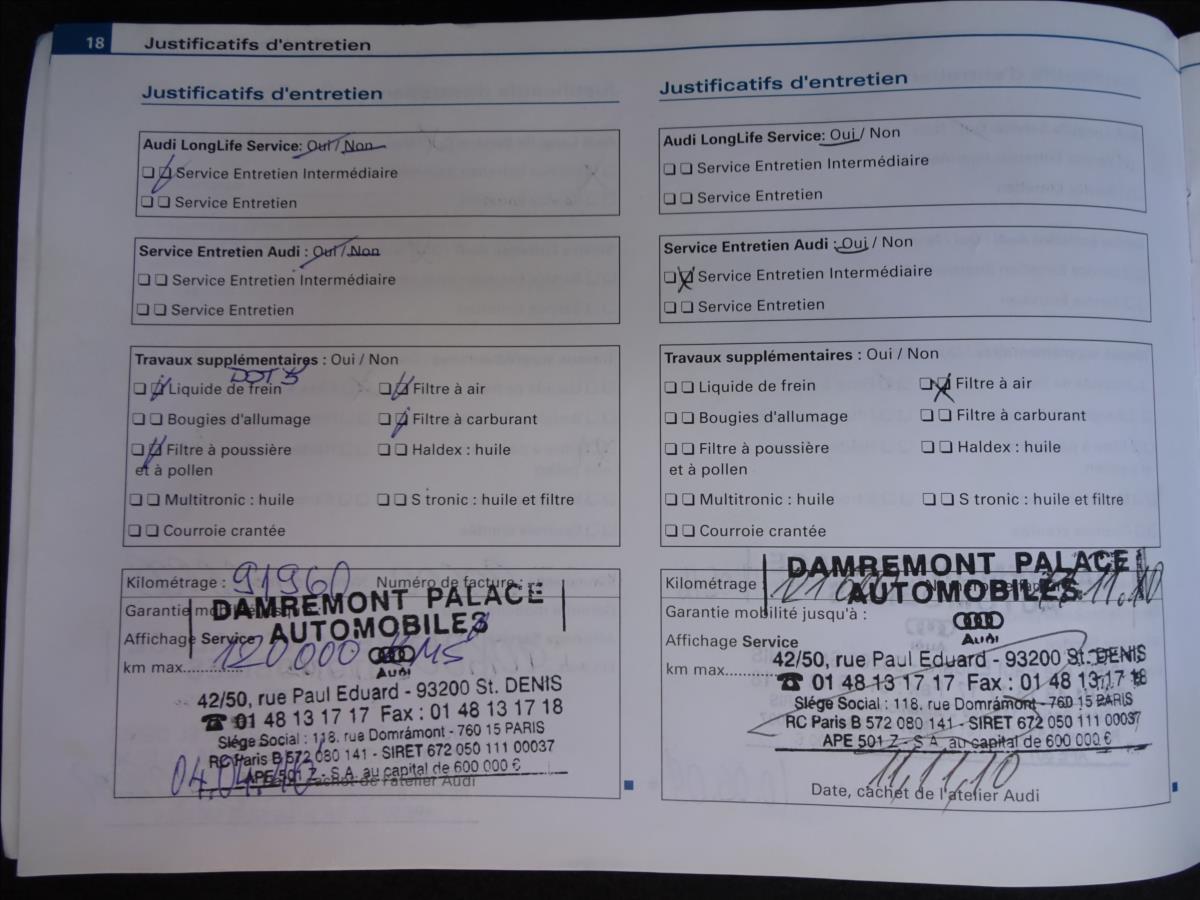 18 Justificatifs d'entretien
Justificatifs d'entretien
Audi LongLife Service: Oui / Non
Service Entretien Intermédiaire
Service Entretien
Service Entretien Audi : Oui / Non
Service Entretien Intermédiaire
Service Entretien
Travaux supplémentaires : Oui / Non
Liquide de frein
Filtre à air
Bougies d'allumage
Filtre à carburant
Filtre à poussière
Haldex : huile
et à pollen
Multitronic : huile
S tronic : huile et filtre
Courroie crantée
Kilométrage : 91960 Numéro de facture :
DAMREMONT PALACE
Garantie mobilité jusqu'à :
AUTOMOBILES
Affichage Service
120 000 KMS
km max
Audi
42/50, rue Paul Eduard - 93200 St. DENIS
☎ 01 48 13 17 17 Fax : 01 48 13 17 18
Siége Social : 118, rue Domrámont - 760 15 PARIS
RC Paris B 572 080 141 - SIRET 672 050 111 00037
APE 501 Z - S.A. au capital de 600 000 €
cachet de l'atelier Audi
Justificatifs d'entretien
Audi LongLife Service: Oui / Non
Service Entretien Intermédiaire
Service Entretien
Service Entretien Audi : Oui / Non
Service Entretien Intermédiaire
Service Entretien
Travaux supplémentaires : Oui / Non
Liquide de frein
Filtre à air
Bougies d'allumage
Filtre à carburant
Filtre à poussière
Haldex : huile
et à pollen
Multitronic : huile
S tronic : huile et filtre
Courroie crantée
DAMREMONT PALACE
Kilométrage :
AUTOMOBILES
Garantie mobilité jusqu'à :
Affichage Service
Audi
km max
42/50, rue Paul Eduard - 93200 St. DENIS
☎ 01 48 13 17 17 Fax : 01 48 13 17 18
Siége Social : 118, rue Domrámont - 760 15 PARIS
RC Paris B 572 080 141 - SIRET 672 050 111 00037
APE 501 Z - S.A. au capital de 600 000 €
11.11.10
Date, cachet de l'atelier Audi